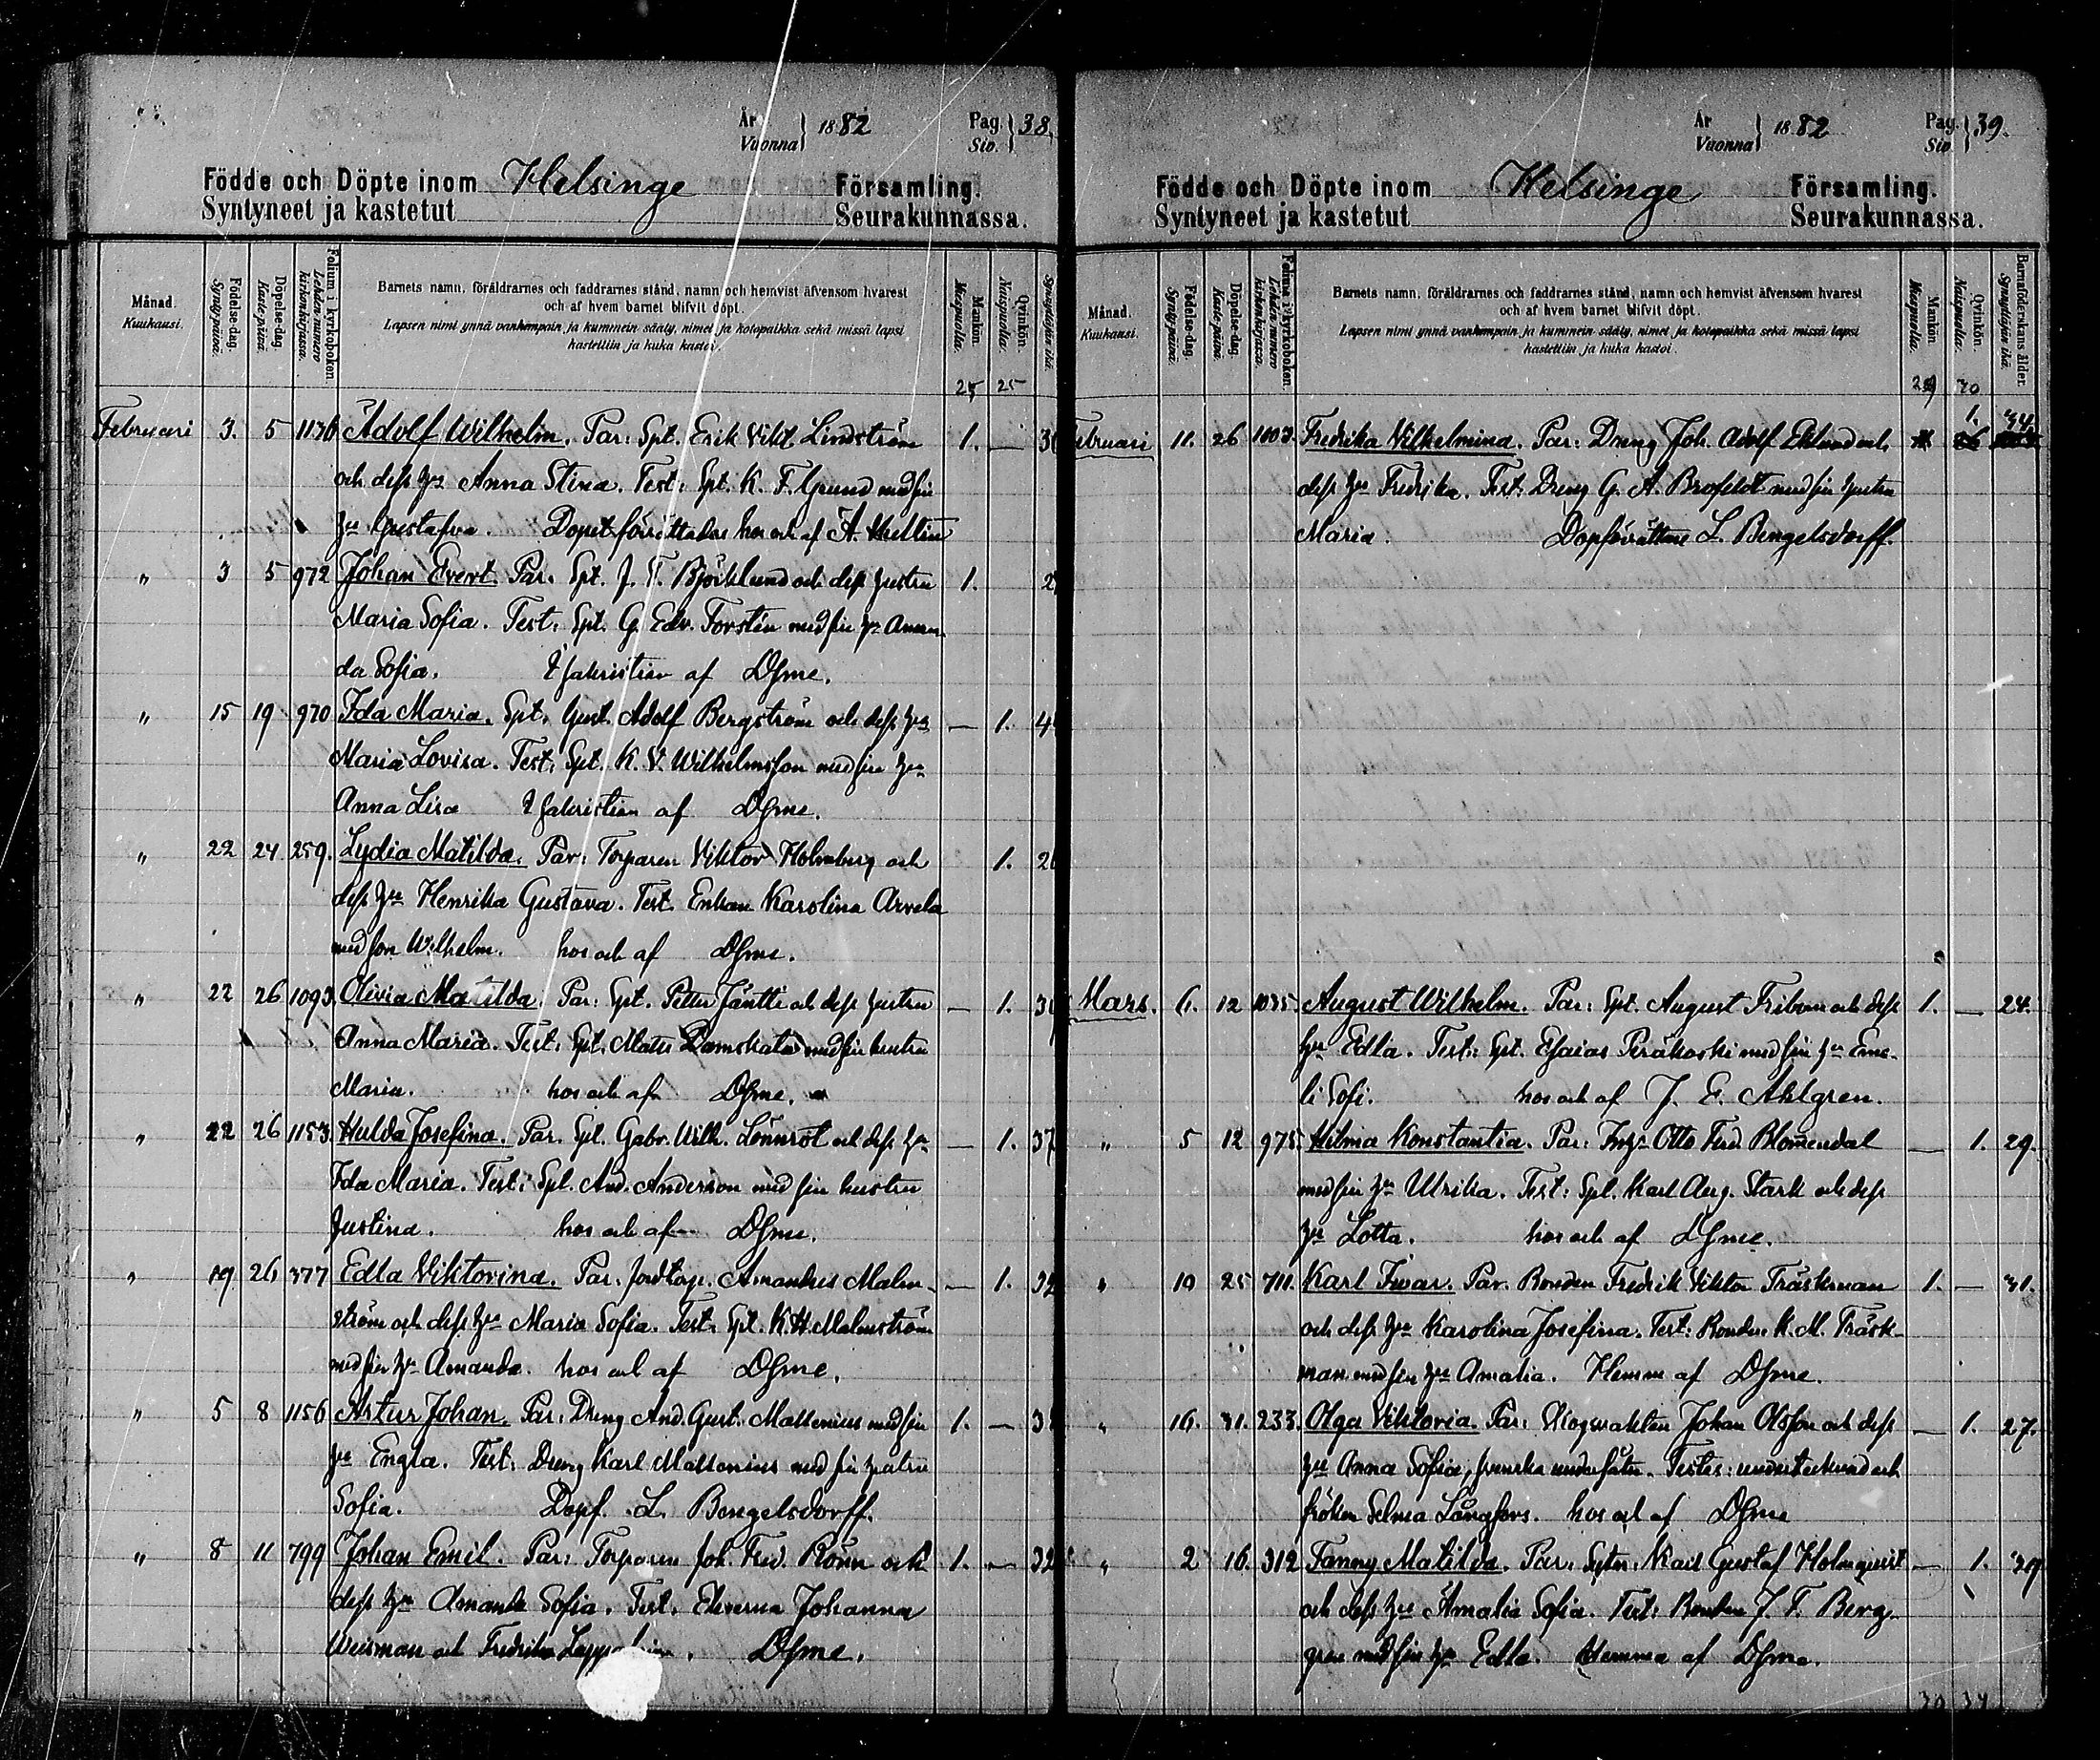 År Vuonna 1882 Pag. Siv. 38.
Födde och Döpte inom Helsinge Församling.
Syntyneet ja kastetut Seurakunnassa.
Månad. Kuukausi.
Födelse-dag. Synty-päivä.
Döpelse-dag. Kaste-päivä.
Folium i kyrkoboken. Lehden numero kirkonkirjassa.
Barnets namn, föräldrarnes och faddrarnes stånd, namn och hemvist äfvensom hvarest
och af hvem barnet blifvit döpt.
Lapsen nimi ynnä vanhimpain ja kummein sääty, nimet ja kotopaikka sekä missä lapsi
kastettiin ja kuka kastoi.
Mankön. Miespuolia.
Qvinkön. Naispuolia.
25 25
Februari 3. 5 1176 Adolf Wilhelm. Par: Spt. Erik Vikt. Lindström 1. —
och dess hu Anna Stina. Test: Spt. K. F. Grund med sin
hu Gustafva. Dopet förrättades hos och af A. Hellin
" 3 5 972 Johan Evert. Par. Spt. J. F. Björklund och dess hustru 1.
Maria Sofia. Test: Spt. G. Edv. Forstén med sin hu Aman-
da Sofia. I sakristian af Dsme.
" 15 19 970 Ida Maria. Spt. Gust. Adolf Bergström och dess hu — 1.
Maria Lovisa. Test. Spt. K. V. Wilhelmsson med sin hu
Anna Lisa I sakristian af Dsme.
" 22 24 259. Lydia Matilda. Par: Torparen Viktor Holmberg och 1.
dess hu Henrika Gustava. Test. Enkan Karolina Arvela
med son Wilhelm. hos och af Dsme.
" 22 26 1093 Olivia Matilda. Par: Spt. Petter Jäntti och dess hustru — 1.
Anna Maria. Test: Spt. Matts Damskata med sin hustru
Maria. hos och af Dsme.
" 22 26 1153. Hulda Josefina. Par. Spt. Gabr. Wilh. Lönnrot och dess hu — 1. 37
Ida Maria. Test: Spt. And. Anderson med sin hustru
Justina. hos och af Dsme.
" 19 26 377 Edla Viktorina. Par. Amandus Malm- — 1. 32
ström och dess hu Maria Sofia. Test. Spt. K. H. Malmström
med sin hu Amanda. hos och af Dsme.
" 5 8 1156 Artur Johan. Par: Dreng And. Gust. Mattenius med sin 1. —
hu Engla. Test: Dreng Karl Mattenius med sin hustru
Sofia. Dopf. L. Bengelsdorff.
" 8 11 799 Johan Emil. Par: Torparen Joh. Fred. Rönn och 1. — 32
dess hu Amanda Sofia. Test. Eleverna Johanna
Weisman och Fredrika . Dsme.
År Vuonna 1882 Pag. Siv. 39.
Födde och Döpte inom Helsinge Församling.
Syntyneet ja kastetut Seurakunnassa.
Månad. Kuukausi.
Födelse-dag. Synty-päivä.
Döpelse-dag. Kaste-päivä.
Folium i kyrkoboken. Lehden numero kirkonkirjassa.
Barnets namn, föräldrarnes och faddrarnes stånd, namn och hemvist äfvensom hvarest
och af hvem barnet blifvit döpt.
Lapsen nimi ynnä vanhimpain ja kummein sääty, nimet ja kotopaikka sekä missä lapsi
kastettiin ja kuka kastoi.
Mankön. Miespuolia.
Qvinkön. Naispuolia.
Barnaföderskans ålder. Synnyttäjän ikä.
29 30
Februari 11. 26 1003. Fredrika Vilhelmina. Par: Dreng Joh. Adolf Eklund och 1. 34.
dess hu Fredrika. Test: Dreng G. A. Brofeldt med sin hustru
Maria. Dopförrättare L. Bengelsdorff.
Mars. 6. 12 1035. August Wilhelm. Par: Spt. August Fribom och dess 1. — 24.
hu Edla. Test: Spt. Esaias Peräkoski med sin hu Eme-
li Sofi. hos och af J. E. Ahlgren.
" 5 12 975. Hilma Konstantia. Par: Otto Ferd. Blomendal — 1. 29.
med sin hu Ulrika. Test: Spt. Karl Aug. Stark och dess
hu Lotta. hos och af Dsme.
" 10 25 711. Karl Iwar. Par. Bonden Fredrik Viktor Träskman 1. — 31.
och dess hu Karolina Josefina. Test: Bonden K. M. Träsk-
man med sin hu Amalia. Hemma af Dsme.
" 16. 31. 233. Olga Viktoria. Par: Skogsvakten Johan Olsson och dess — 1. 27.
hu Anna Sofia, svenska undersåter. Testes: undertecknad och
fröken Selma Långfors. hos och af Dsme
" 2 16. 312 Fanny Matilda. Par: Karl Gustaf Holmqvist — 1. 29
och dess hu Amalia Sofia. Test: Bonden J. F. Berg-
gren med sin hu Edla. Hemma af Dsme.
30 34